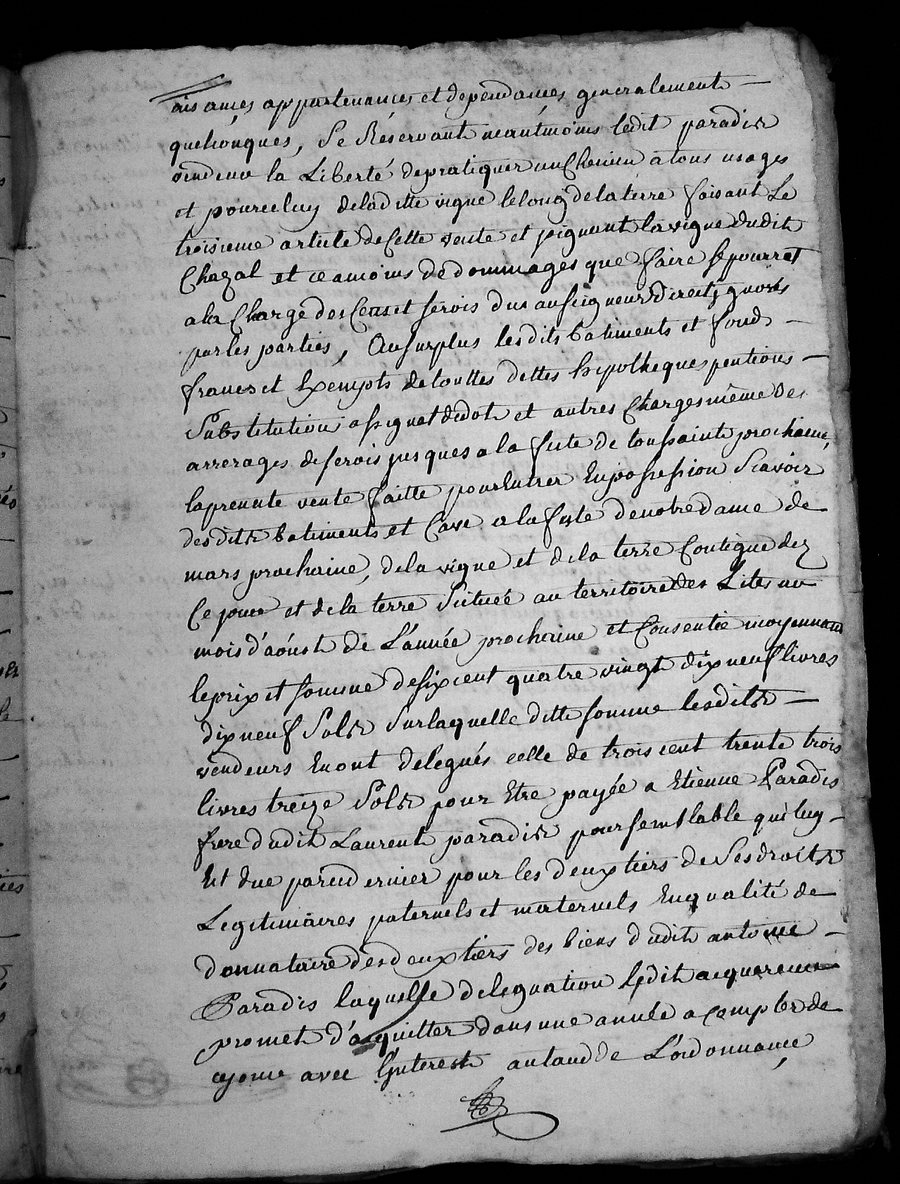 aisances appartenances et dependances generalement
quelconques, Se Réservant néantmoins ledit paradis
vendeur la Liberté de pratiquer un Chemin à tous usages
et pour celuy de laditte vigne le long de la terre faisant Le
troisieme article de Cette vente et joignant la vigne dudit
Chazal et ce a moins de dommages que faire se pourrat
a la Charge des Cens et servis dus au seigneur direct ignorés
par les parties, Au surplus lesdits batiments et fond
francs et Exempts de touttes dettes hipotheques pentions
Substitution assignat de dot et autres Charges même des
arrerages de servis jusques a la feste de toussaint prochaine,
la presente vente faitte pour Entrer En possession Scavoir
desdits batiments et Cave a la feste de notre dame de
mars prochaine, de la vigne et de la terre Contigue dez
Ce jour et de la terre Scituée au territoire des Lites au
mois d'aoust de L'année prochaine et Consentie moyennant
le prix et somme de six cent quatre vingt dix neuf livres
dix neuf Sols Sur laquelle ditte somme lesdits
vendeurs En ont delegués celle de trois cent trente trois
livres treize Sols pour Etre payée a Etienne Paradis
frere dudit Laurent paradis pour semblable qui luy
Est due par ce dernier pour les deux tiers de Ses droits
Legitimaires paternels et maternels En qualité de
donnataire des deux tiers des biens dudit antoine
Paradis laquelle delegnation Ledit acquereur
promet d'acquitter dans une année a compter de
ce jour avec L'interest au taud de L'ordonnance